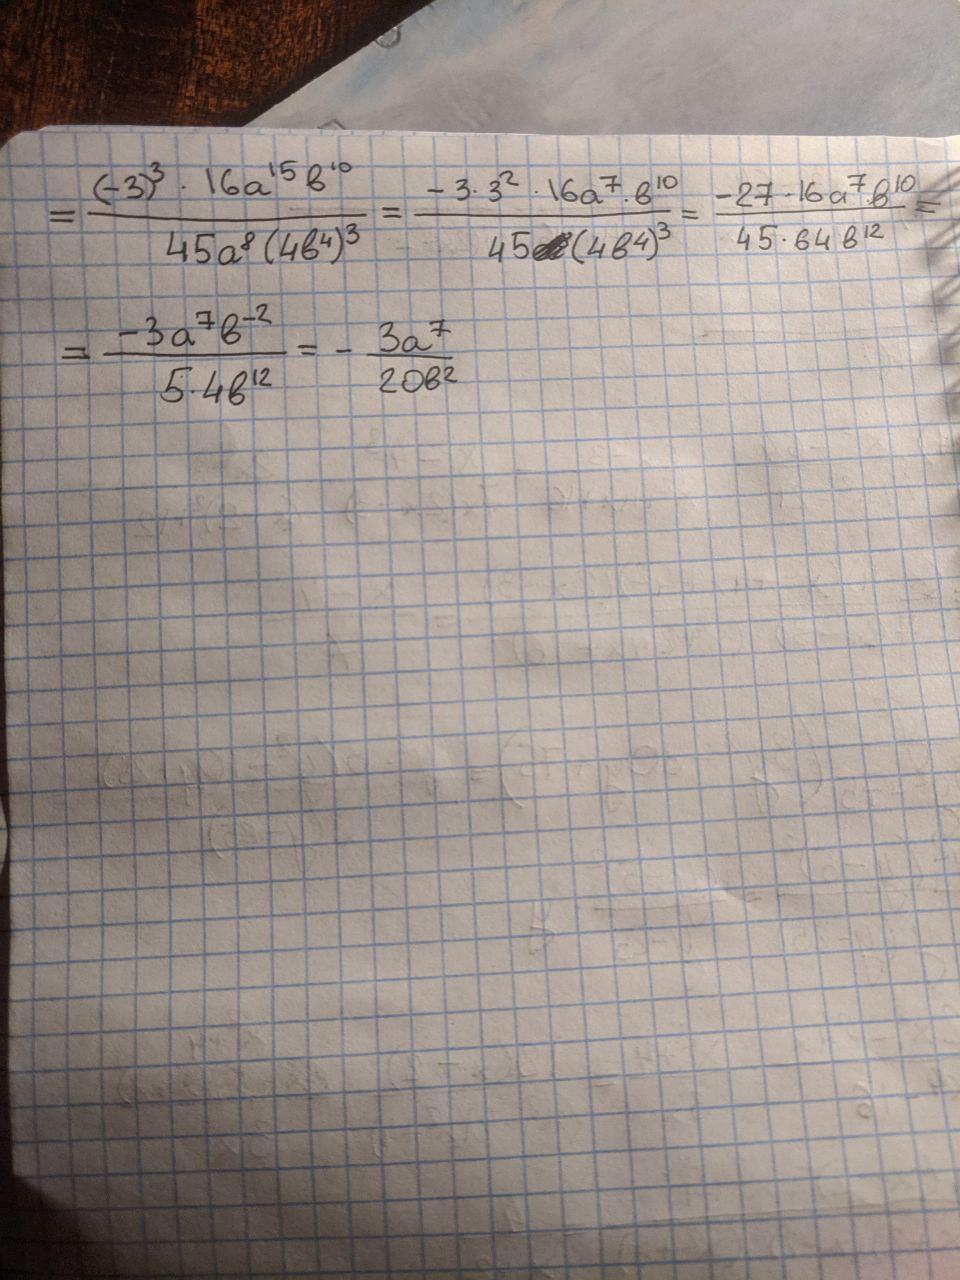 = (-3)³ · 16a¹⁵в¹⁰ / 45a⁸(4в⁴)³ = -3·3² · 16a⁷·в¹⁰ / 45(4в⁴)³ = -27·16a⁷·в¹⁰ / 45·64в¹² =
= -3a⁷в⁻² / 5·4в¹² = - 3a⁷ / 20в²